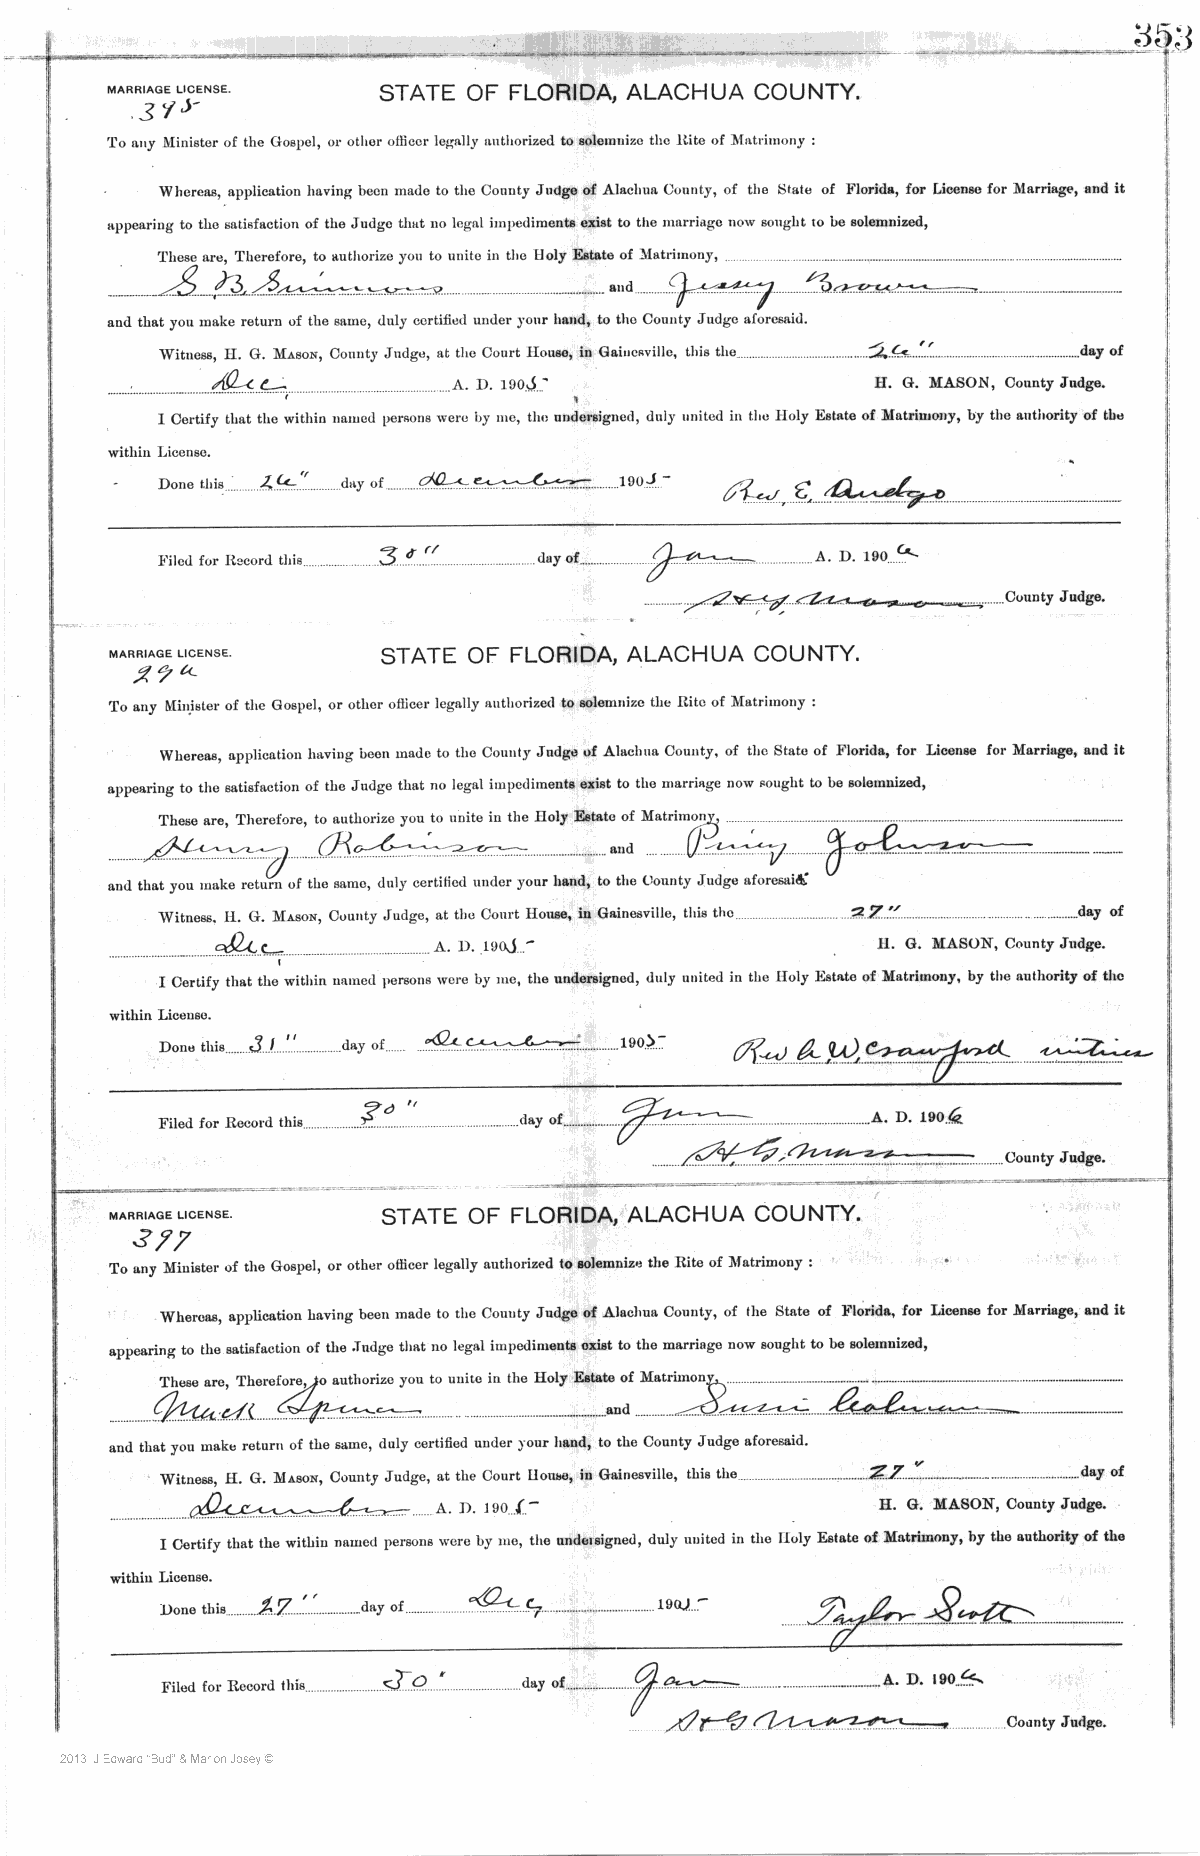 353
MARRIAGE LICENSE.
STATE OF FLORIDA, ALACHUA COUNTY.
395
To any Minister of the Gospel, or other officer legally authorized to solemnize the Rite of Matrimony :
Whereas, application having been made to the County Judge of Alachua County, of the State of Florida, for License for Marriage, and it
appearing to the satisfaction of the Judge that no legal impediments exist to the marriage now sought to be solemnized,
These are, Therefore, to authorize you to unite in the Holy Estate of Matrimony,
S. B. Simmons and Jessey Brown
and that you make return of the same, duly certified under your hand, to the County Judge aforesaid.
Witness, H. G. MASON, County Judge, at the Court House, in Gainesville, this the 26" day of
Dec, A. D. 1905- H. G. MASON, County Judge.
I Certify that the within named persons were by me, the undersigned, duly united in the Holy Estate of Matrimony, by the authority of the
within License.
Done this 26" day of December 1905- Rev. E.
Filed for Record this 30" day of Jan A. D. 1906
H. G. Mason County Judge.
MARRIAGE LICENSE.
STATE OF FLORIDA, ALACHUA COUNTY.
296
To any Minister of the Gospel, or other officer legally authorized to solemnize the Rite of Matrimony :
Whereas, application having been made to the County Judge of Alachua County, of the State of Florida, for License for Marriage, and it
appearing to the satisfaction of the Judge that no legal impediments exist to the marriage now sought to be solemnized,
These are, Therefore, to authorize you to unite in the Holy Estate of Matrimony,
Henry Robinson and Piney Johnson
and that you make return of the same, duly certified under your hand, to the County Judge aforesaid.
Witness, H. G. MASON, County Judge, at the Court House, in Gainesville, this the 27" day of
Dec, A. D. 1905- H. G. MASON, County Judge.
I Certify that the within named persons were by me, the undersigned, duly united in the Holy Estate of Matrimony, by the authority of the
within License.
Done this 31" day of December 1905- Rev A. W. Crawford
Filed for Record this 30" day of Jan A. D. 1906
H. G. Mason County Judge.
MARRIAGE LICENSE.
STATE OF FLORIDA, ALACHUA COUNTY.
397
To any Minister of the Gospel, or other officer legally authorized to solemnize the Rite of Matrimony :
Whereas, application having been made to the County Judge of Alachua County, of the State of Florida, for License for Marriage, and it
appearing to the satisfaction of the Judge that no legal impediments exist to the marriage now sought to be solemnized,
These are, Therefore, to authorize you to unite in the Holy Estate of Matrimony,
Mack and Susie Colman
and that you make return of the same, duly certified under your hand, to the County Judge aforesaid.
Witness, H. G. MASON, County Judge, at the Court House, in Gainesville, this the 27" day of
December A. D. 1905- H. G. MASON, County Judge.
I Certify that the within named persons were by me, the undersigned, duly united in the Holy Estate of Matrimony, by the authority of the
within License.
Done this 27" day of Dec, 1905- Taylor Scott
Filed for Record this 30" day of Jan A. D. 1906
H G Mason County Judge.
2013 J Edward "Bud" & Marion Josey ©